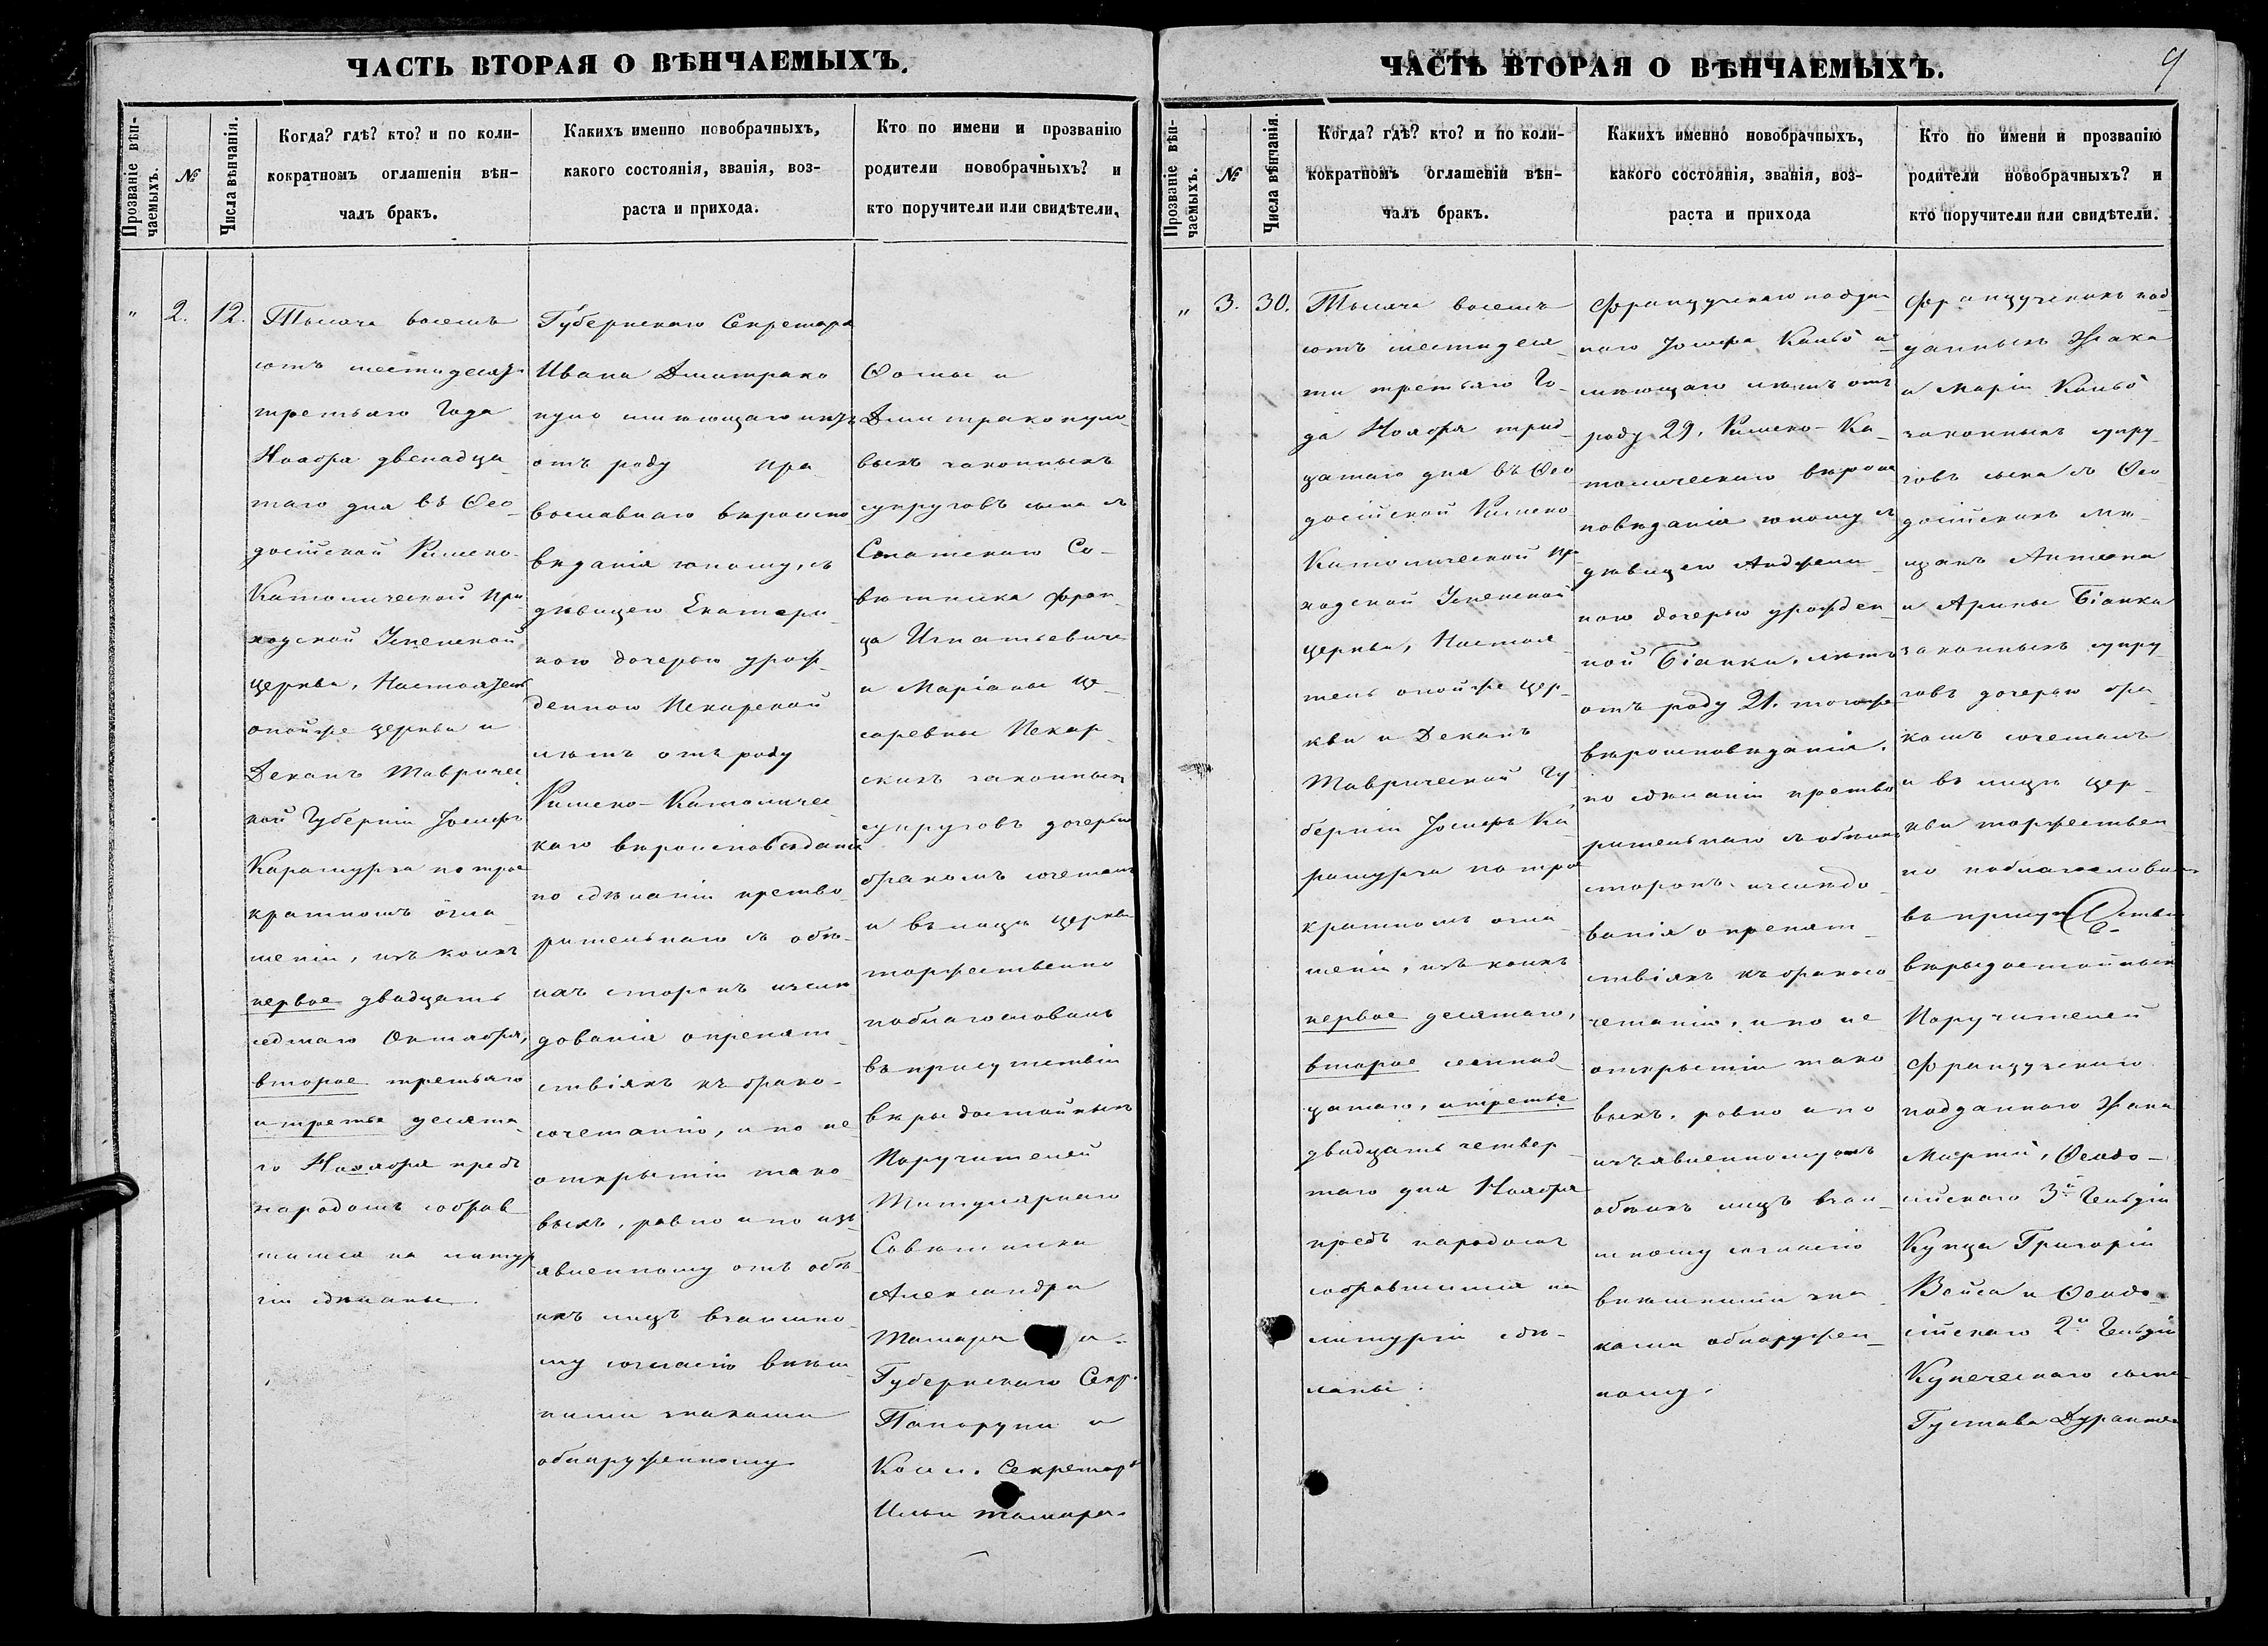 ЧАСТЬ ВТОРАЯ О ВѢНЧАЕМЫХЪ.
Прозваніе вѣн-
чаемыхъ.
№
Числа вѣнчанія.
Когда? гдѣ? кто? и по коли-
кократномъ оглашеніи вѣн-
чалъ бракъ.
Какихъ именно новобрачныхъ,
какого состоянія, званія, воз-
раста и прихода.
Кто по имени и прозванію
родители новобрачныхъ? и
кто поручители или свидѣтели.
"
2.
12.
Тысяча восемь
сотъ шестьдесятъ
третьяго Года
Ноября двенадца-
таго дня въ Ѳео-
досійской Римско-
Католической При-
ходской Успенской
церкви, Настоятель
онойже церкви и
Деканъ Тавричес
кой Губерніи Іосифъ
Карамурза по трое
кратномъ огла-
шеніи, изъ коихъ
первое двадцать
седмаго Октября,
второе третьяго
и третье десята-
го Ноября предъ
народомъ собрав
шимся на литур
гіи сдѣланы.
Губернскаго Секретаря
Ивана Дмитрако
пуло имѣющаго лѣтъ
отъ роду пра-
вославнаго вѣроиспо
вѣданія юношу, съ
дѣвицею Екатери-
ною дочерью урож-
денною Пекарской
лѣтъ отъ роду
Римско-Католичес
каго вѣроисповѣданія
по сдѣланіи предво-
рительнаго съ обѣ-
ихъ сторонъ изслѣ
дованія о препят-
ствіяхъ къ брако-
сочетанію, и по не-
открытіи тако-
выхъ, равно и по изъ
явленному отъ обѣ-
ихъ лицъ взаимно-
му согласію внѣш-
ними знаками
обнаруженному
Ѳомы и
Дмитракопуло-
выхъ законныхъ
супруговъ сына съ
Статскаго Со-
вѣтника Фран-
ца Игнатьевича
и Маріаны Це-
саревны Пекар-
скихъ законныхъ
супруговъ дочерью
бракомъ сочеталъ
и въ лицѣ церкви
торжественно
поблагословилъ
въ присутствіи
вѣрыдостойныхъ
Поручителей
Титулярнаго
Совѣтника
Александра
Тамара и
Губернскаго Секр.
и
Колл. Секретаря
Ильи Тамара.
ЧАСТЬ ВТОРАЯ О ВѢНЧАЕМЫХЪ.
9
Прозваніе вѣн-
чаемыхъ.
№
Числа вѣнчанія.
Когда? гдѣ? кто? и по коли-
кократномъ оглашеніи вѣн-
чалъ бракъ.
Какихъ именно новобрачныхъ,
какого состоянія, званія, воз-
раста и прихода
Кто по имени и прозванію
родители новобрачныхъ? и
кто поручители или свидѣтели.
"
3.
30.
Тысяча восемь
сотъ шестьдеся-
ти третьяго Го-
да Ноября трид-
цатаго дня въ Ѳео
досійской Римско-
Католической При-
ходской Успенской
церкви, Настоя-
тель онойже цер-
кви и Деканъ
Таврической Гу-
берніи Іосифъ Ка-
рамурза по трое
кратномъ огла-
шеніи, изъ коихъ
первое десятаго,
второе семнад-
цатаго, и третье
двадцать четвер-
таго дня Ноября
предъ народомъ
собравшимся на
литургіи сдѣ-
ланы.
Французскаго поддан
наго Іосифа и-
мѣющаго лѣтъ отъ
роду 29, Римско-Ка-
толическаго вѣроис
повѣданія юношу съ
дѣвицею
ною дочерью урожден
ной Біанки, лѣтъ
отъ роду 21. тогоже
вѣроисповѣданія.
по сдѣланіи предва
рительнаго съ обѣихъ
сторонъ изслѣдо-
ванія о препят-
ствіяхъ къ бракосо
четанію, и по не
открытіи тако
выхъ, равно и по
изъявленному отъ
обѣихъ лицъ взаи-
мному согласію
внѣшними зна-
ками обнаружен-
ному.
Французскихъ под-
данныхъ Жака
и Маріи
законныхъ супру-
говъ сына съ Ѳео
досійскихъ мѣ-
щанъ Антона
и Арины Біанки
законныхъ супру-
говъ дочерью бра-
комъ сочеталъ
и въ лицѣ цер-
кви торжествен
но поблагословилъ
въ присутствіи
вѣрыдостойныхъ
Поручителей
Французскаго
подданнаго Жана
Мартъ, Ѳеодо-
сійскаго 3й Гильдіи
Купца Григорія
Вейса и Ѳеодо-
сійскаго 2й Гильдіи
Купеческаго сына
Густава Дуранте.